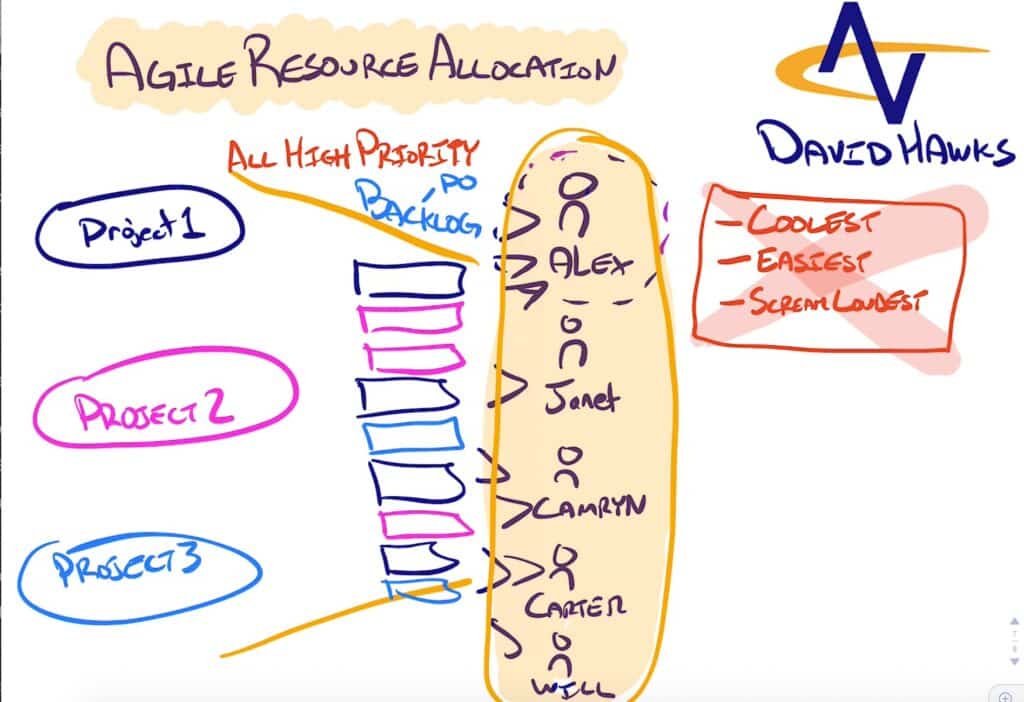 AGILE RESOURCE ALLOCATION
DAVID HAWKS
ALL HIGH PRIORITY
PO
BACKLOG
Project 1
ALEX
- COOLEST
- EASIEST
- SCREAM LOUDEST
PROJECT 2
Janet
CAMRYN
PROJECT 3
CARTER
WILL